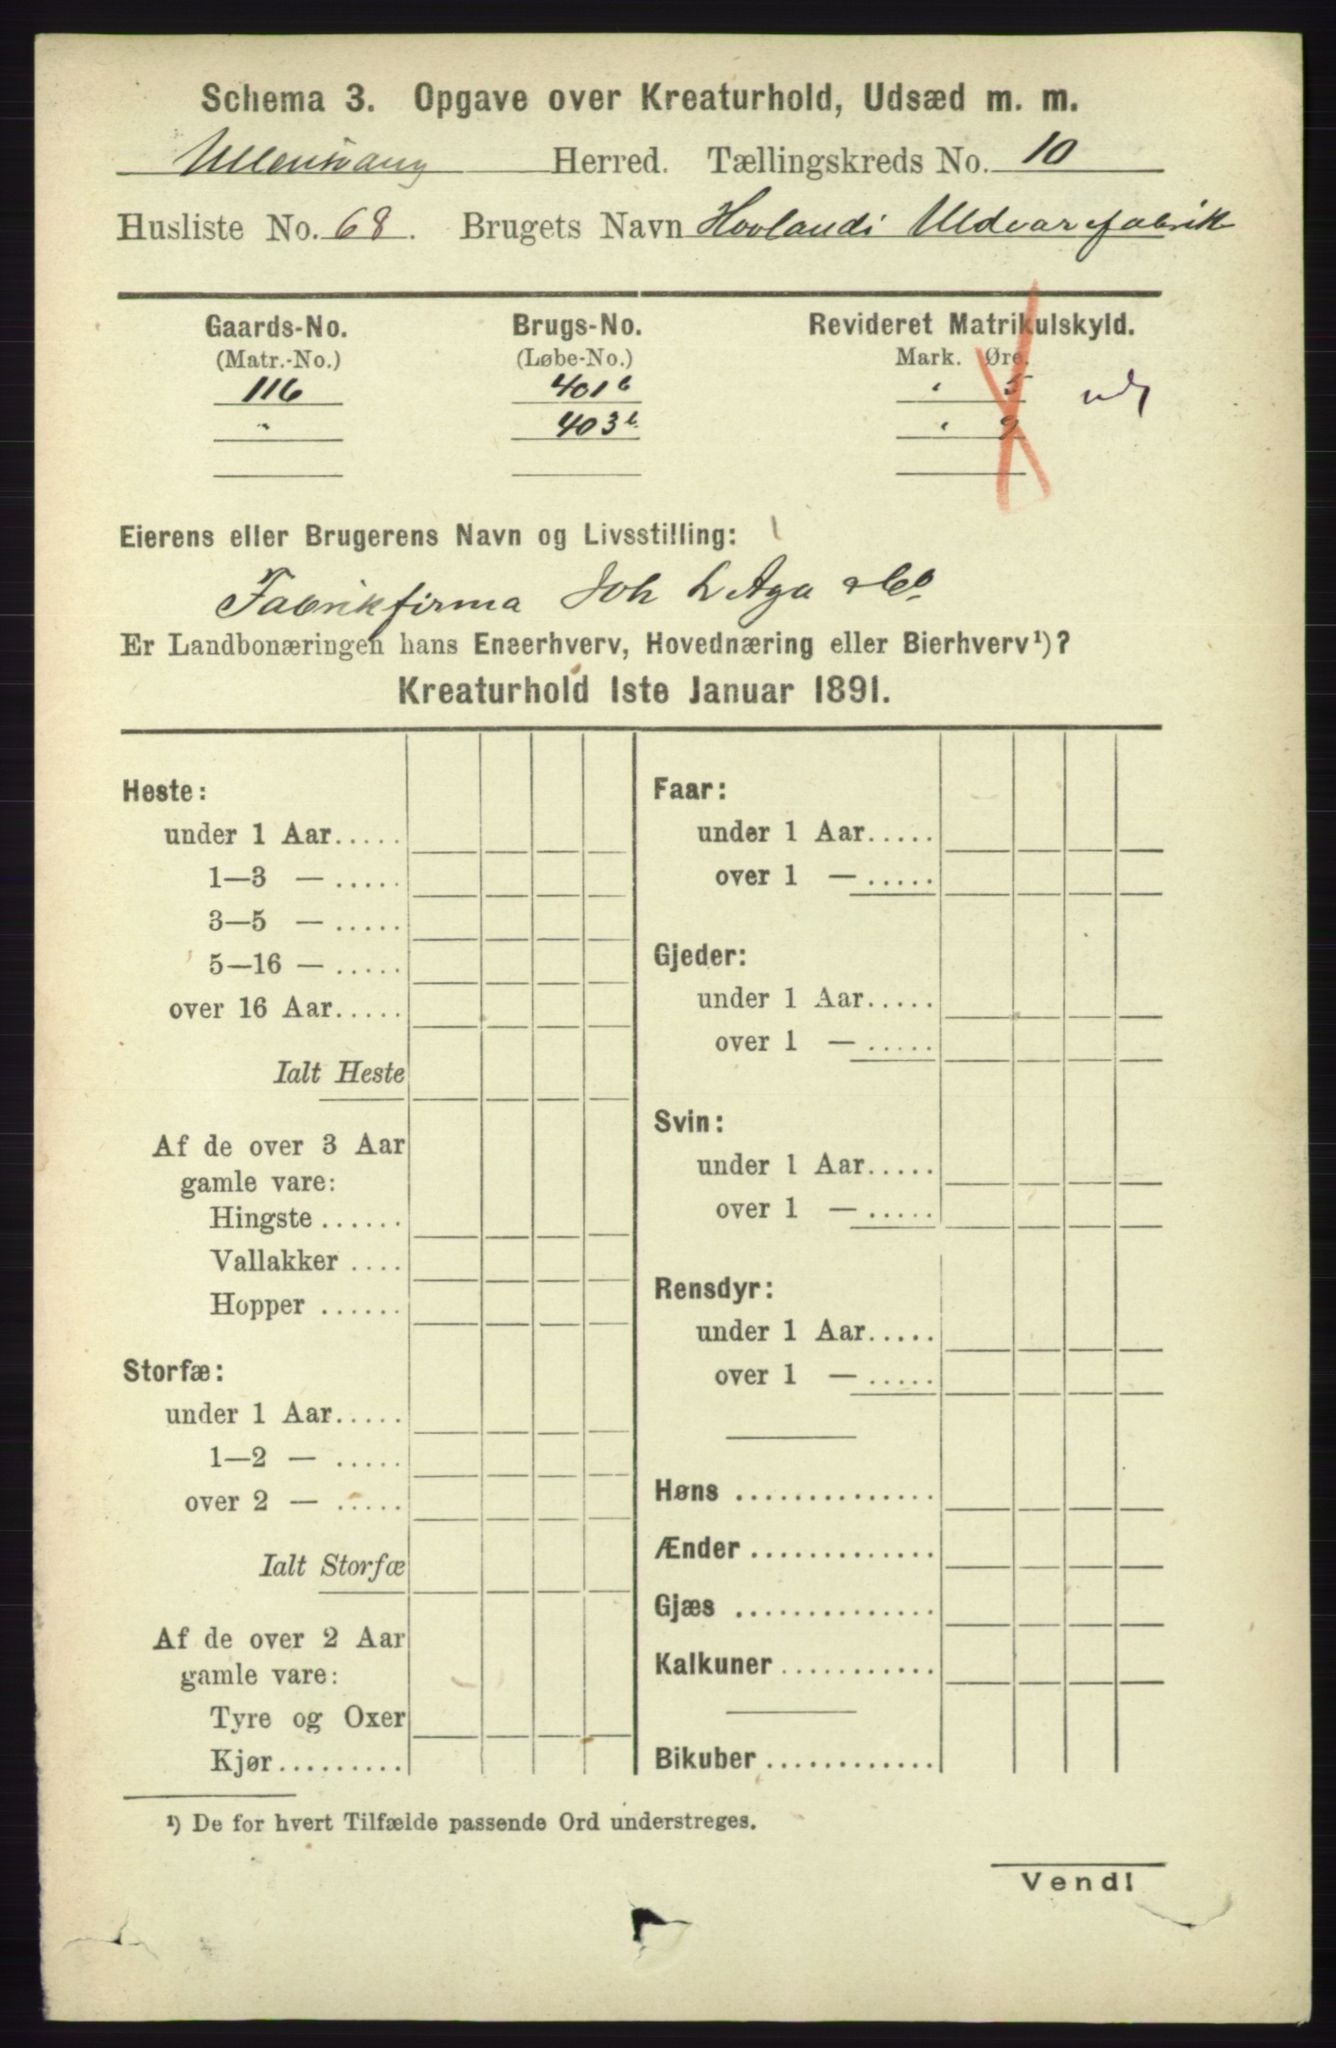 Schema 3. Opgave over Kreaturhold, Udsæd m. m.
Ullensvang Herred. Tællingskreds No. 10
Husliste No. 68. Brugets Navn Hovlands Uldvarefabrik
Gaards-No. Brugs-No. Revideret Matrikulskyld.
(Matr.-No.) (Løbe-No.) Mark. Øre.
116 401 b " 5
" 403 b " 9
Eierens eller Brugerens Navn og Livsstilling:
Fabrikfirma Joh L Aga & Co
Er Landbonæringen hans Eneerhverv, Hovednæring eller Bierhverv¹)?
Kreaturhold 1ste Januar 1891.
Heste:
under 1 Aar.....
1—3 — .....
3—5 — .....
5—16 — .....
over 16 Aar.....
Ialt Heste
Af de over 3 Aar
gamle vare:
Hingste ......
Vallakker ....
Hopper ......
Storfæ:
under 1 Aar.....
1—2 — .....
over 2 — .....
Ialt Storfæ
Af de over 2 Aar
gamle vare:
Tyre og Oxer
Kjør.........
Faar:
under 1 Aar.....
over 1 — .....
Gjeder:
under 1 Aar.....
over 1 — .....
Svin:
under 1 Aar.....
over 1 — .....
Rensdyr:
under 1 Aar.....
over 1 — .....
Høns ..............
Ænder .............
Gjæs ..............
Kalkuner ...........
Bikuber .............
¹) De for hvert Tilfælde passende Ord understreges.
Vend!